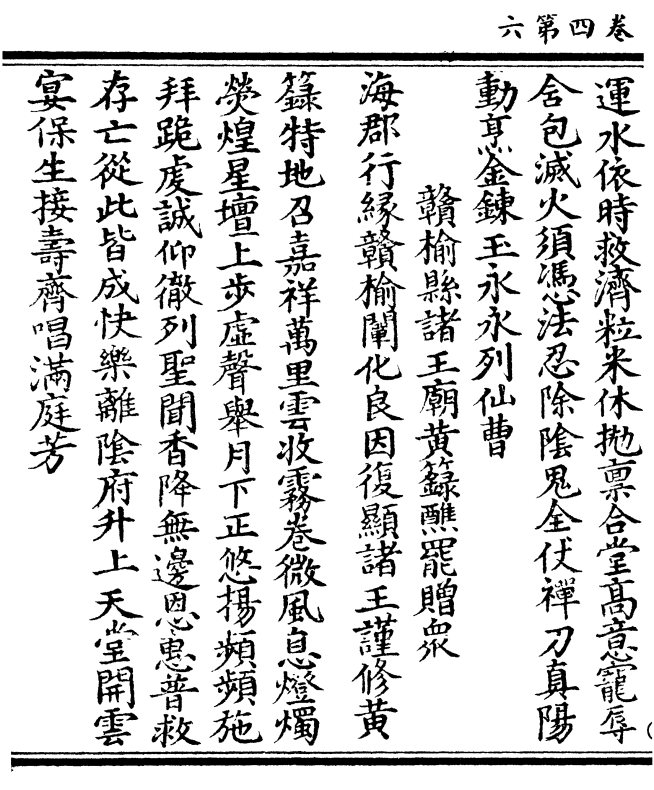 卷四第六
運水依時救濟粒米休抛禀合堂髙意寵辱
舍包滅火須憑法忍除陰鬼全伏禪刀真陽
動烹金鍊玉永永列仙曹
贛榆縣諸王廟黄籙醮罷贈衆
海郡行緣贛榆闡化良因復顯諸王謹修黄
籙特地召嘉祥萬里雲收霧卷微風息燈燭
熒煌星壇上步虛聲舉月下正悠揚頻頻施
拜跪虔誠仰徹列聖聞香降無邊恩惠普救
存亡從此皆成快樂離陰府升上天堂開雲
宴保生接壽齊唱滿庭芳